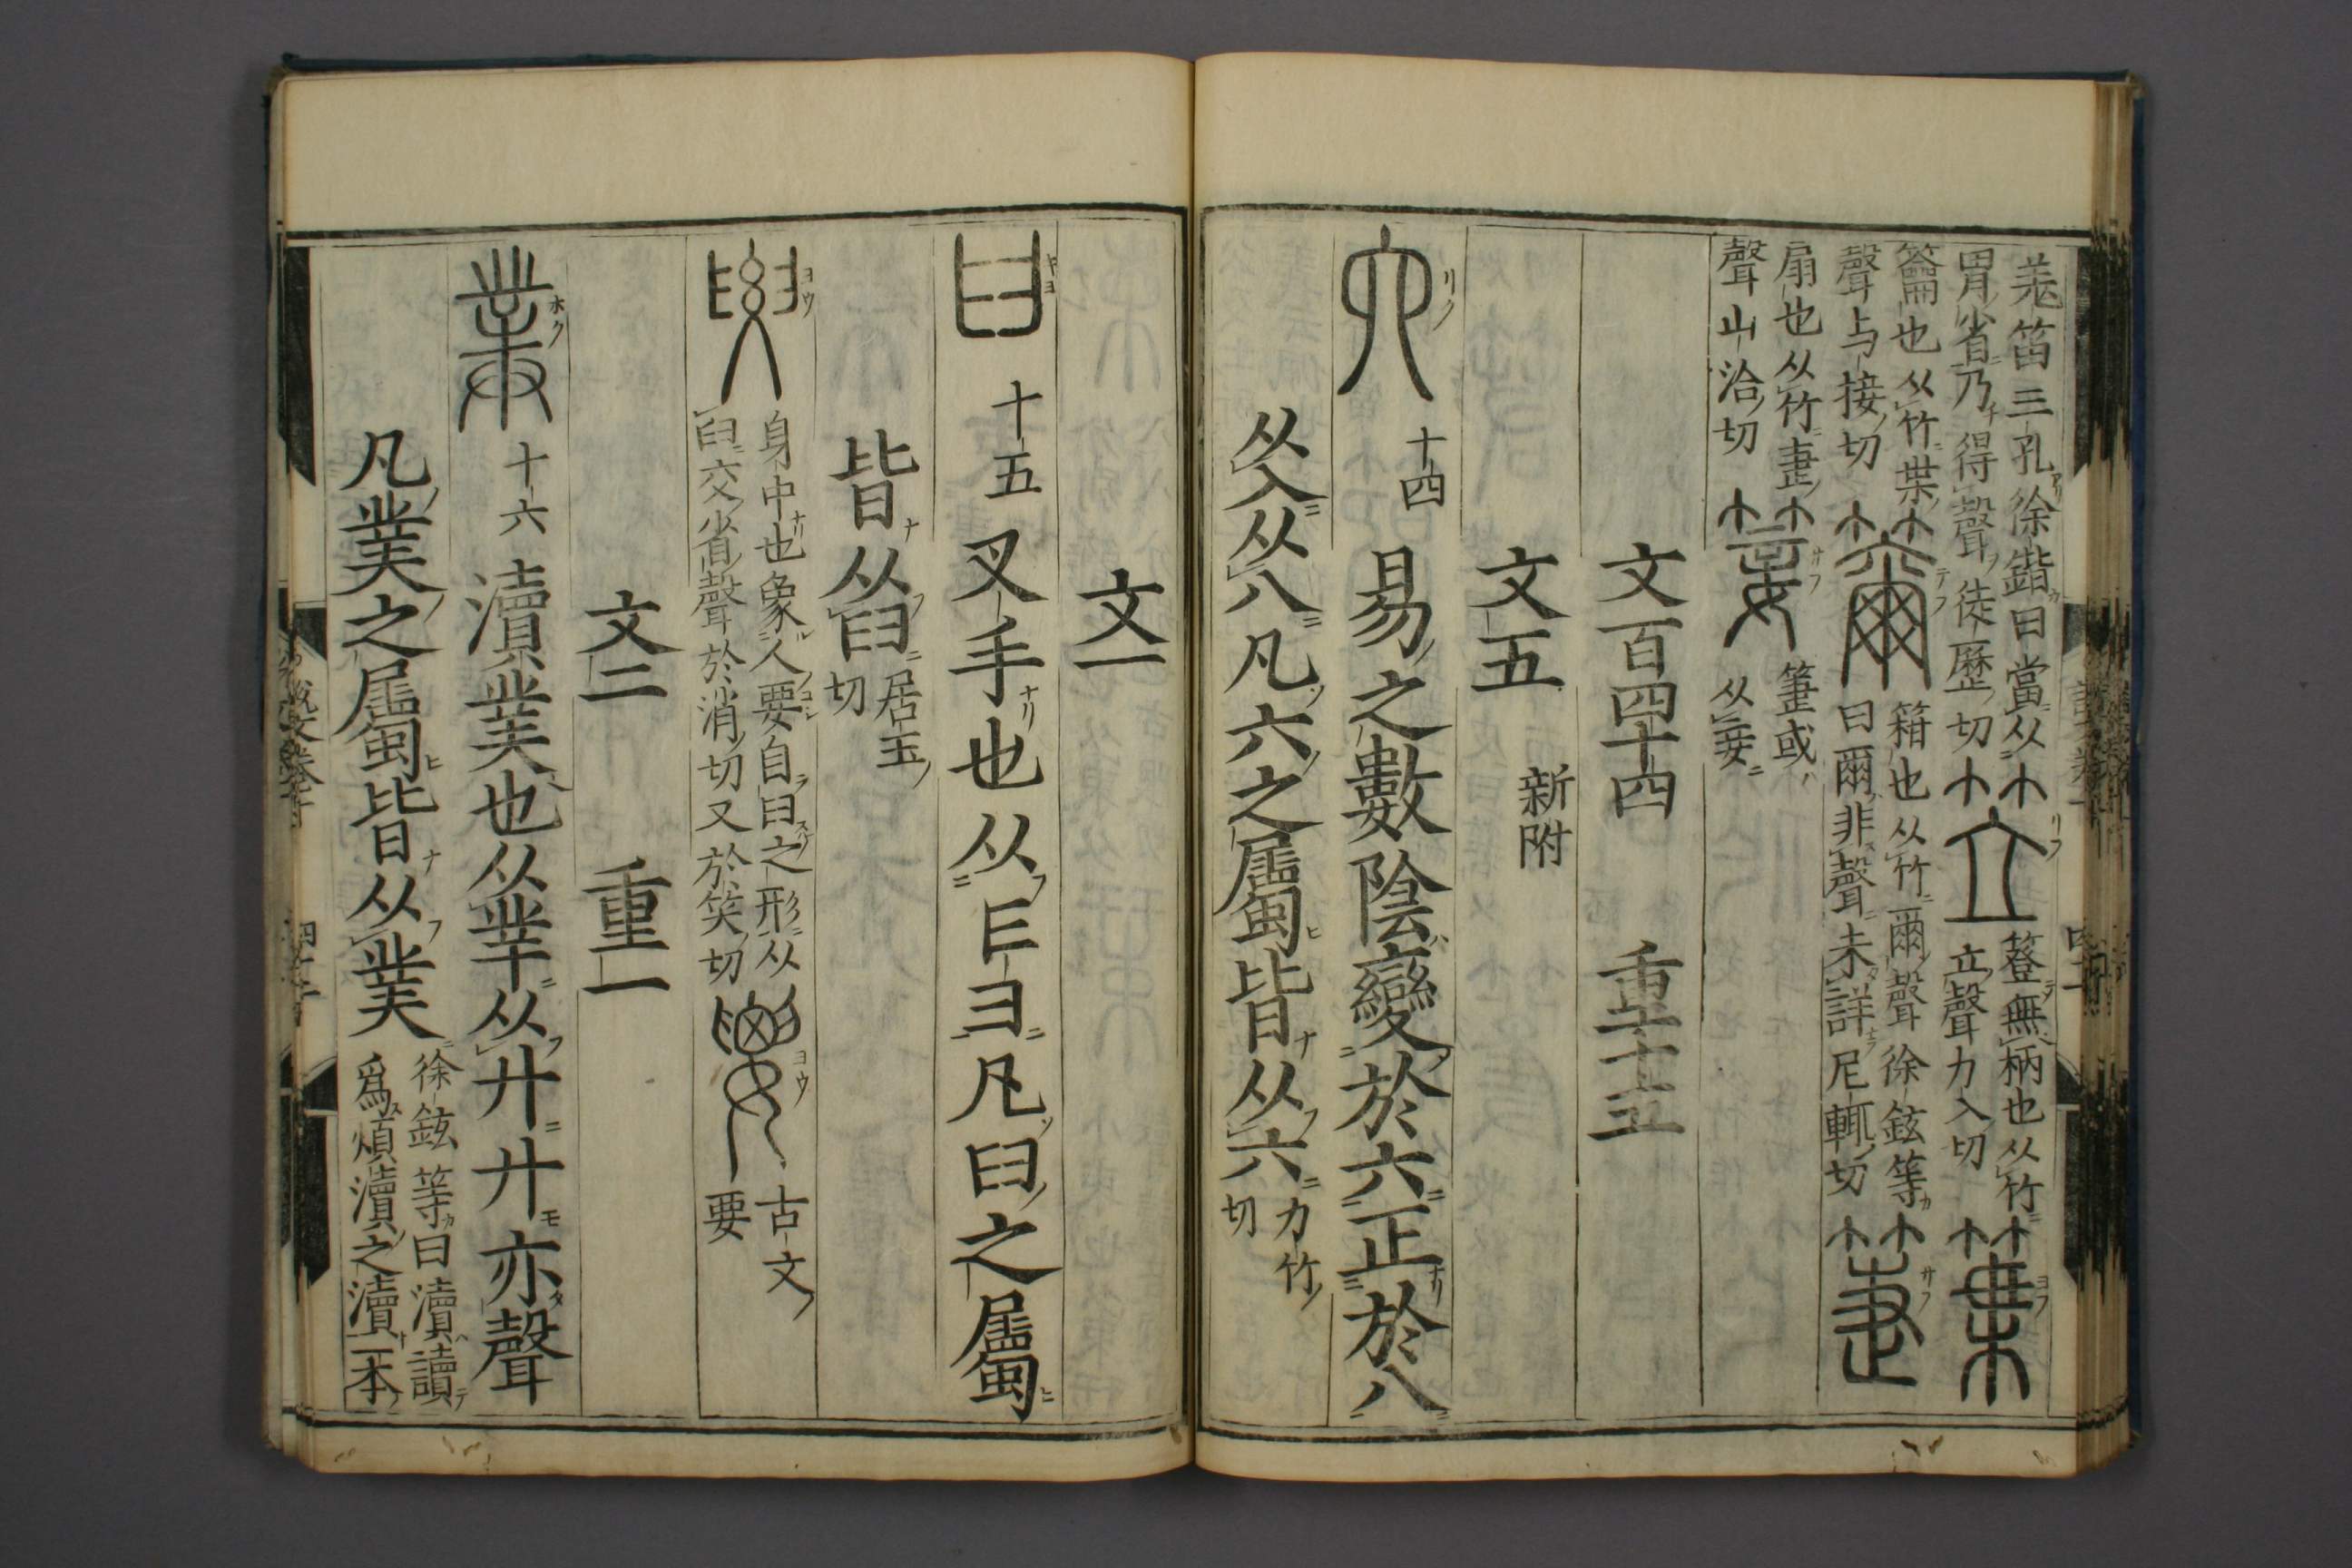 羌笛三孔徐鍇曰當从
胃省乃得聲徒歷切
笠
簦無柄也从竹
立聲力入切
䈎
籥也从竹枼
聲与接切
籋
箝也从竹爾聲徐鉉等
曰爾非聲未詳尼輒切
箑
扇也从竹疌
聲山洽切
箑或
从妾
文百四十四　重十五
文五　新附
六　十四　易之數陰變於六正於八
从入从八凡六之屬皆从六　力竹
切
文一
𦥑　十五　叉手也从𠂈彐凡𦥑之屬
皆从𦥑　居玉
切
要
身中也象人要自𦥑之形从
𦥑交省聲於消切又於笑切
古文
要
文二　重一
菐　十六　瀆菐也从丵从廾廾亦聲
凡菐之屬皆从菐
徐鉉等曰瀆讀
爲煩瀆之瀆一本